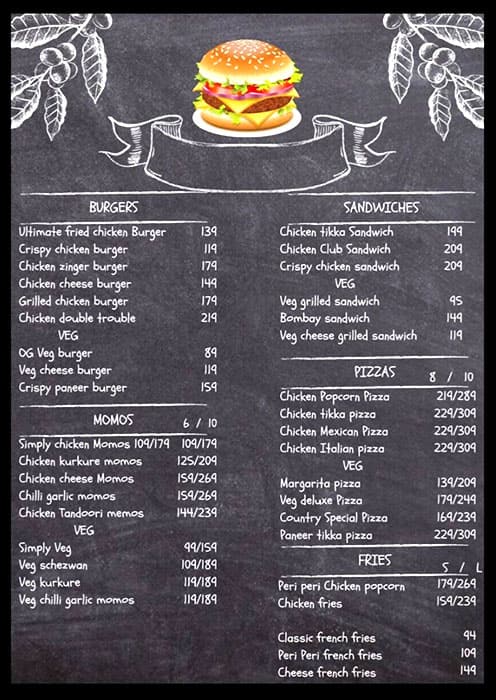 BURGERS
Ultimate fried chicken Burger 139
Crispy chicken burger 119
Chicken zinger burger 179
Chicken cheese burger 149
Grilled chicken burger 179
Chicken double trouble 219
VEG
OG Veg burger 89
Veg cheese burger 119
Crispy paneer burger 159
MOMOS 6 / 10
Simply chicken Momos 109/179 109/179
Chicken kurkure momos 125/209
Chicken cheese Momos 159/269
Chilli garlic momos 159/269
Chicken Tandoori memos 144/239
VEG
Simply Veg 99/159
Veg schezwan 109/189
Veg kurkure 119/189
Veg chilli garlic momos 119/189
SANDWICHES
Chicken tikka Sandwich 199
Chicken Club Sandwich 209
Crispy chicken sandwich 209
VEG
Veg grilled sandwich 95
Bombay sandwich 149
Veg cheese grilled sandwich 119
PIZZAS 8 / 10
Chicken Popcorn Pizza 219/289
Chicken tikka pizza 229/309
Chicken Mexican Pizza 229/309
Chicken Italian pizza 229/309
VEG
Margarita pizza 139/209
Veg deluxe Pizza 179/249
Country Special Pizza 169/239
Paneer tikka pizza 229/309
FRIES S / L
Peri peri Chicken popcorn 179/269
Chicken fries 159/239
Classic french fries 94
Peri Peri french fries 109
Cheese french fries 149